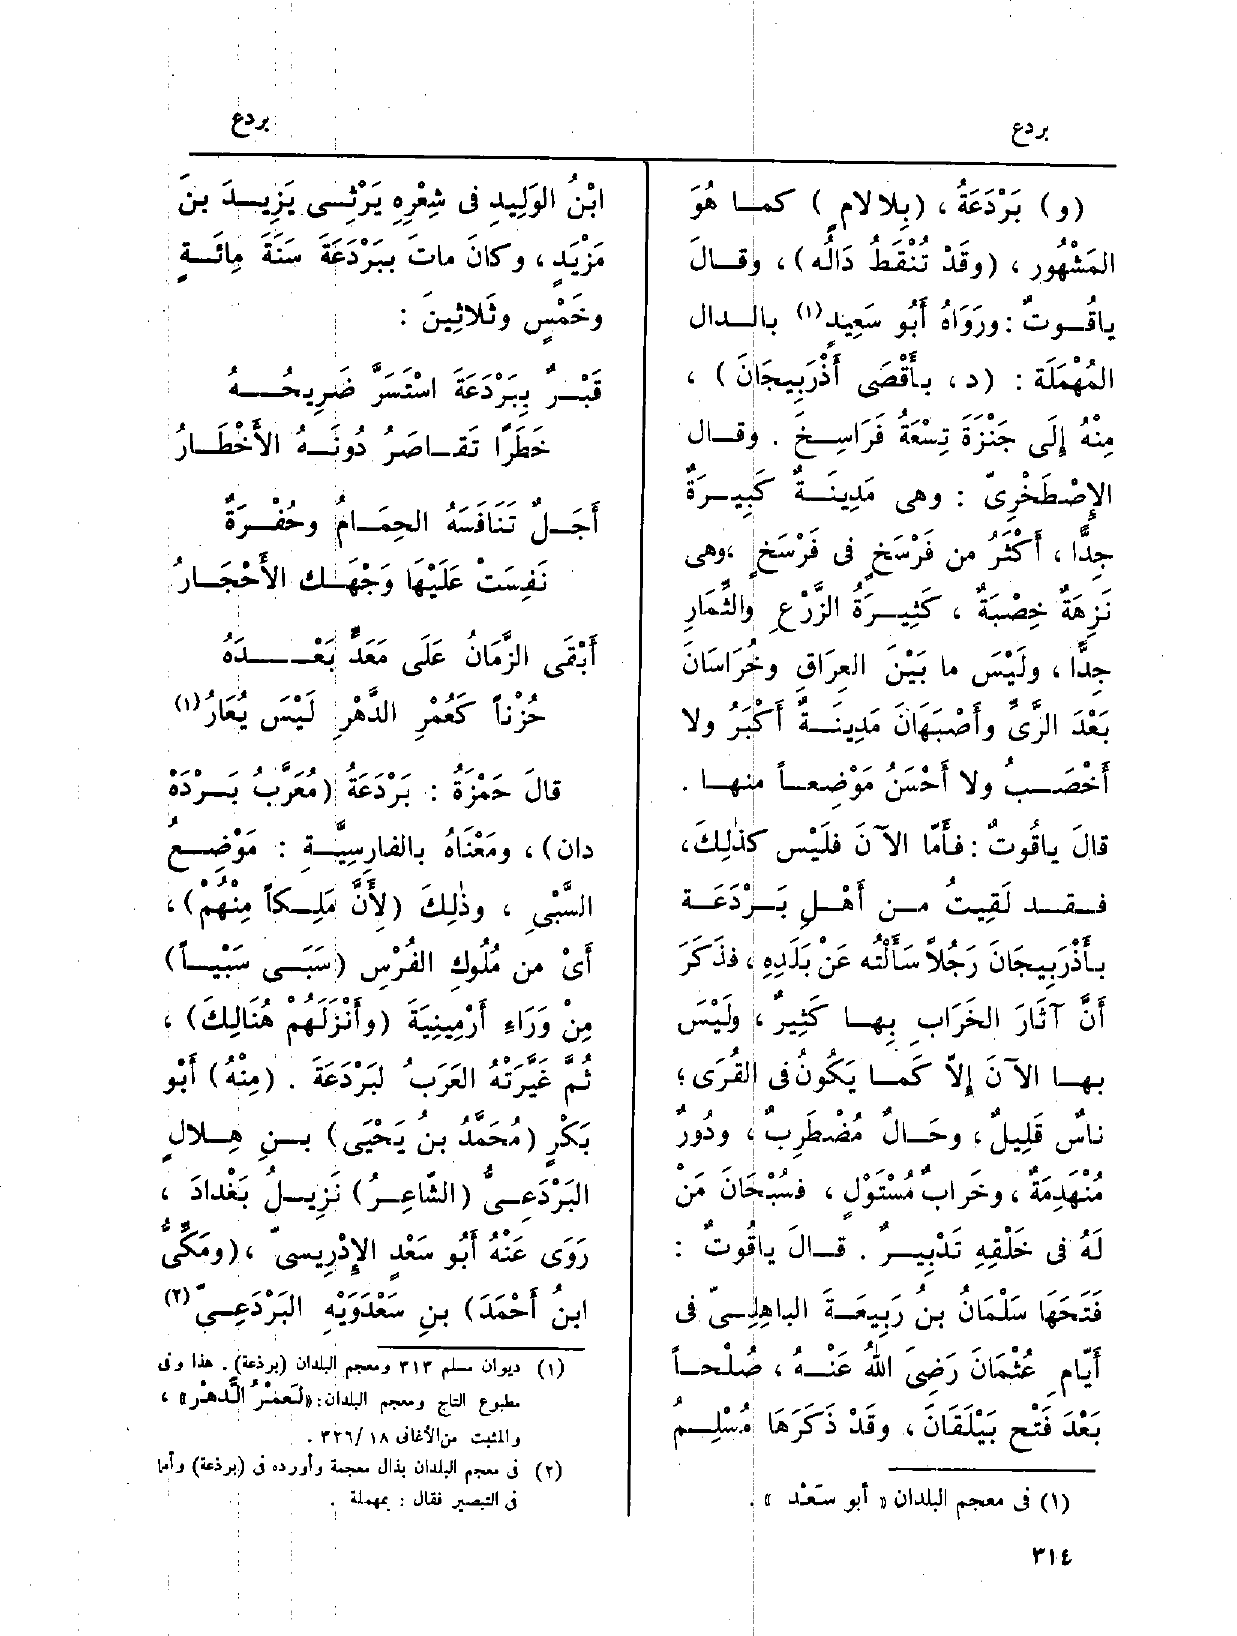 بردع
بردع
(و) بَرْدَعَةُ ، (بِلا لامٍ) كمـا هُوَ
المَشْهُور ، (وقَدْ تُنْقَطُ دَالُه) ، وقـالَ
ياقُـوتٌ : ورَوَاهُ أَبُو سَعِيدٍ (١) بالـدال
المُهْمَلَة : (د ، بـأَقْصَى أَذْرَبِيجَانَ) ،
مِنْهُ إِلَى جَنْزَةَ تِسْعَةُ فَرَاسِـخَ . وقـال
الإِصْطَخْرِىّ : وهى مَدِينَـةٌ كَبِيـرَةٌ
جِدًّا ، أَكْثَرُ من فَرْسَخٍ فى فَرْسَخٍ ،وهى
نَزِهَةٌ خِصْبَةٌ ، كَثِيـرَةُ الزَّرْعِ والثِّمَارِ
جِدًّا ، ولَيْسَ ما بَيْنَ العِرَاقِ وخُرَاسَانَ
بَعْدَ الرَّىِّ وأَصْبَهَانَ مَدِينَـةٌ أَكْبَرُ ولا
أَخْصَـبُ ولا أَحْسَنُ مَوْضِعـاً منهـا .
قالَ ياقُوتٌ : فأَمّا الآنَ فلَيْس كذٰلِكَ،
فـقـد لَقِيتُ مـن أَهْلِ بَـرْدَعَـة
بـأَذْرَبِيجَانَ رَجُلاً سَأَلْتُه عَنْ بَلَدِهِ ، فذَكَرَ
أَنَّ آثارَ الخَرَابِ بِهـا كَثِيرٌ ، ولَيْسَ
بهـا الآنَ إِلاَّ كَمـا يَكُونُ فى القُرَى ؛
ناسٌ قَلِيلٌ ، وحَـالٌ مُضْطَرِبٌ ، ودُورٌ
مُنْهَدِمَةٌ ، وخَرابٌ مُسْتَوْلٍ ، فسُبْحَانَ مَن
لَهُ فى خَلْقِهِ تَدْبِيـرٌ . قـالَ ياقُوتٌ :
فَتَحَهَا سَلْمَانُ بنُ رَبِيعَـةَ الباهِلِـىّ فى
أَيّامِ عُثْمَانَ رَضِىَ اللهُ عَنْـهُ ، صُلْحـاً
بَعْدَ فَتْحِ بَيْلَقَانَ ، وقَدْ ذَكَرَهَا مُسْلِـم
(١) فى معجم البلدان « أبو سَعْد » .
٣١٤
ابْنُ الوَلِيدِ فى شِعْرِهِ يَرْثِـى يَزِيـدَ بنَ
مَزْيَدٍ ، وكانَ ماتَ بِبَرْدَعَةَ سَنَةَ مِائَـةٍ
وخَمْسٍ وثَلاثِينَ :
قَبْـرٌ بِبَرْدَعَةَ اسْتَسَرَّ ضَرِيحُـهُ
خَطَرًا تَقَـاصَرُ دُونَـهُ الأَخْطَـارُ
أَجَـلٌ تَنَافَسَهُ الحِمَـامُ وحُفْـرَةٌ
نَفِسَتْ عَلَيْهَا وَجْهَـك الأَحْجَـارُ
أَبْقَى الزَّمَانُ عَلَى مَعَدٍّ بَعْـدَهُ
حُزْناً كَعُمْرِ الدَّهْرِ لَيْسَ يُعَارُ (١)
قالَ حَمْزَةُ : بَرْدَعَةُ (مُعَرَّبُ بَـرْدَهْ
دان) ، ومَعْنَاهُ بالفارِسِيَّـةِ : مَوْضِـعُ
السَّبْىِ ، وذٰلِكَ (لِأَنَّ مَلِـكاً مِنْهُمْ) ،
أَىْ من مُلُوكِ الفُرْسِ (سَبَـى سَبْيـاً)
مِنْ وَرَاءِ أَرْمِينِيَةَ (وأَنْزَلَهُمْ هُنَالِكَ) ،
ثُمَّ غَيَّرَتْهُ العَرَبُ لبَرْدَعَةَ . (مِنْهُ) أَبُو
بَكْرٍ (مُحَمَّدُ بن يَحْيَى) بـنِ هِـلالٍ
البَرْدَعِـىُّ (الشّاعِـرُ) نَزِيـلُ بَغْدادَ ،
رَوَى عَنْهُ أَبُو سَعْدٍ الإِدْرِيسىّ ، (ومَكِّىُّ
ابنُ أَحْمَدَ) بنِ سَعْدَوَيْهِ البَرْدَعِـىّ (٢)
(١) ديوان مسلم ٣١٣ ومعجم البلدان (برذعة) . هذا وفى
مطبوع التاج ومعجم البلدان : «لَعَمْرُ الَّدهْر» ،
والمثبت من الأغانى ١٨ /٣٢٦ .
(٢) فى معجم البلدان بذال معجمة وأورده فى (برذعة) وأما
فى التبصير فقال : بمهملة .